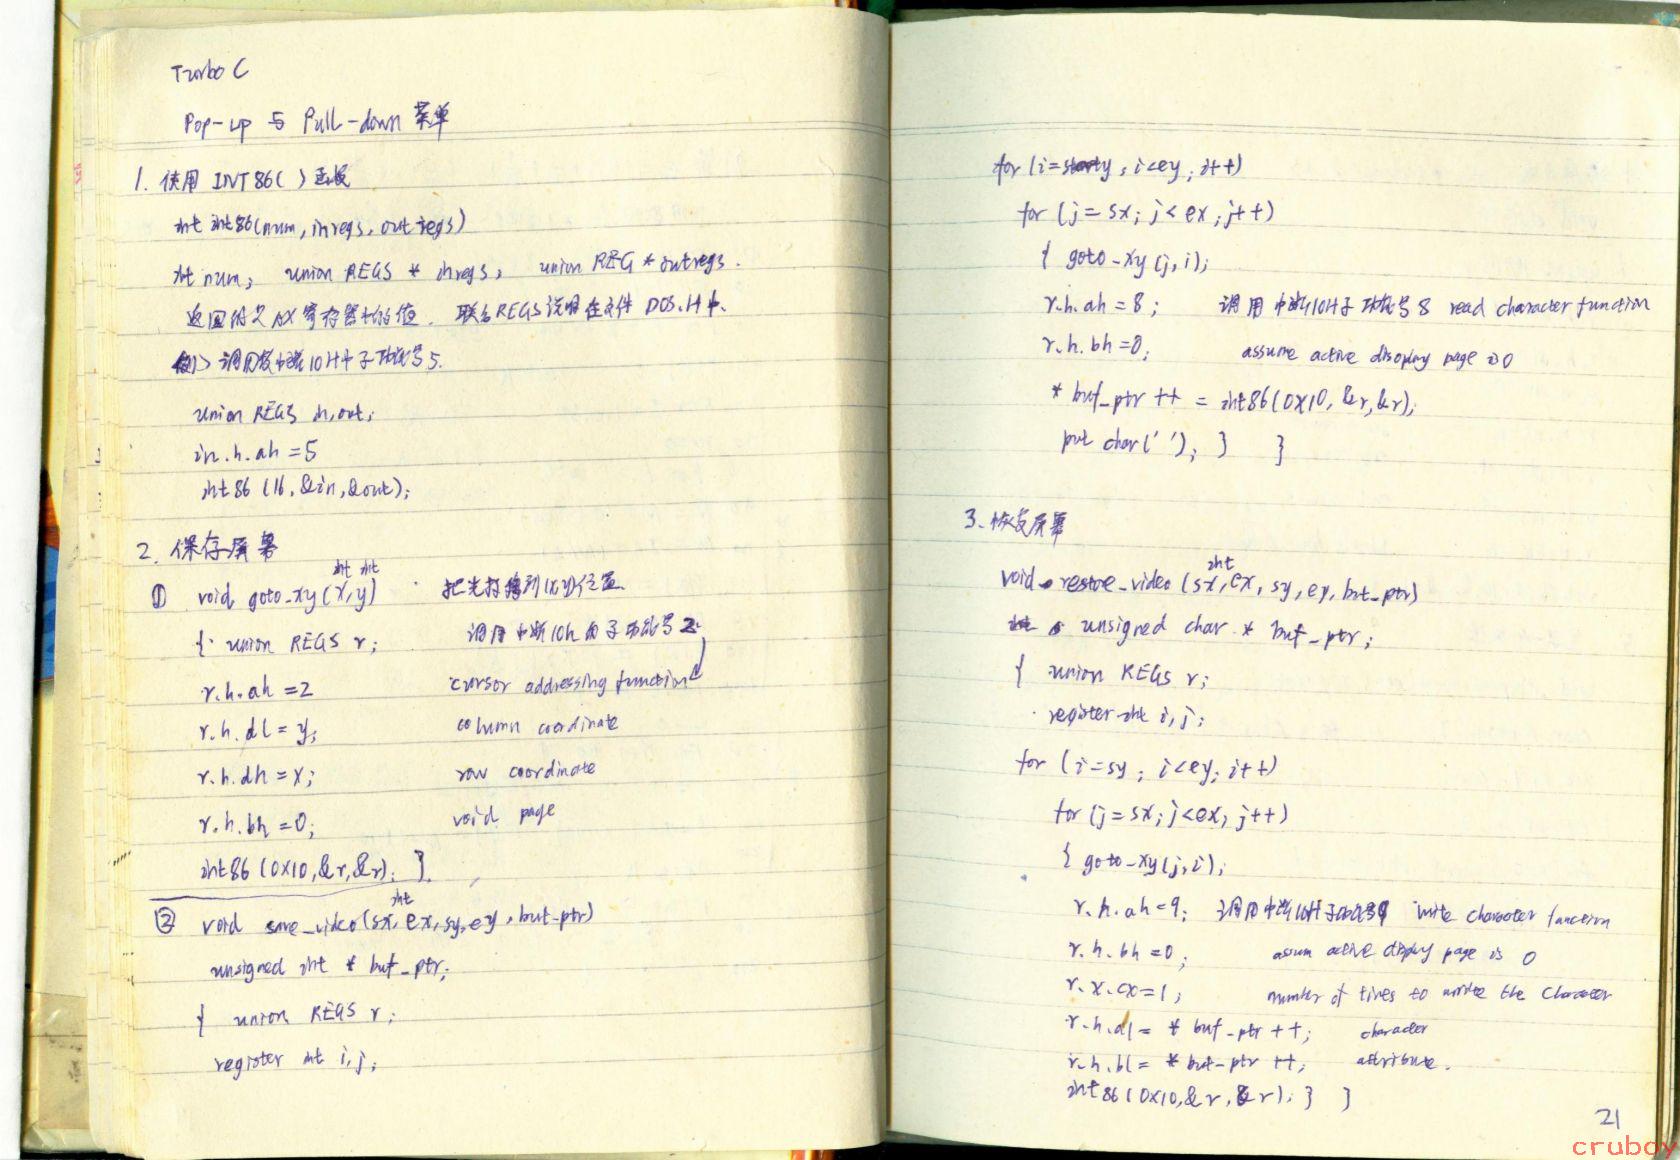 Turbo C
Pop-up 与 Pull-down 菜单
1. 使用 INT86( )函数
int int86(num, inregs, outregs)
int num; union REGS * inregs; union REG * outregs.
返回的是 AX 寄存器中的值. 联合REGS说明在文件 DOS.H 中.
例) 调用 中断10H中子功能号5.
union REGS in,out;
in.h.ah =5
int86 (16, &in, &out);
2. 保存屏幕
int int
① void goto_xy(x,y) 把光标移到(x,y)位置.
{ union REGS r; 调用中断10h的子功能号2.
r.h.ah =2 cursor addressing function
r.h.dl = y; column coordinate
r.h.dh = x; row coordinate
r.h.bh =0; void page
int86 (0X10, &r, &r); }
int
② void save_video(sx, ex, sy, ey, buf_ptr)
unsigned int * buf_ptr;
{ union REGS r;
register int i, j;
for (i=sy; i<ey; i++)
for (j= sx; j< ex; j++)
{ goto_xy (j, i);
r.h.ah = 8; 调用中断10H子功能号8 read character function
r.h.bh =0; assume active display page is 0
* buf_ptr ++ = int86(0X10, &r, &r);
put char(' '); } }
3. 恢复屏幕
int
void restore_video (sx, ex, sy, ey, buf_ptr)
unsigned char * buf_ptr;
{ union REGS r;
register int i, j;
for (i=sy; i<ey; i++)
for (j= sx; j<ex; j++)
{ goto_xy(j, i);
r.h.ah=9; 调用中断10H子功能号9 write character function
r.h.bh =0; assum active display page is 0
r.x.cx=1; number of times to write the character
r.h.al = * buf_ptr ++; character
r.h.bl = * buf_ptr ++; attribute.
int86 (0X10, &r, &r); } }
21
cruboy